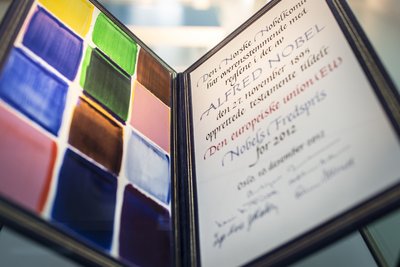 Den Norske Nobelkomité
har overensstemmende med
reglene i det av
ALFRED NOBEL
den 27. november 1895
opprettede testamente tildelt
Den europeiske union (EU)
Nobels Fredspris
for 2012
Oslo, 10. desember 2012